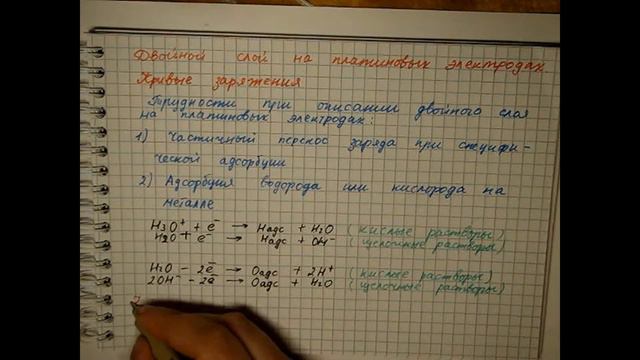 Двойной слой на платиновых электродах.
Кривые заряжения
Трудности при описании двойного слоя
на платиновых электродах:
1) Частичный перенос заряда при специфи-
ческой адсорбции
2) Адсорбция водорода или кислорода на
металле
H₃O⁺ + e⁻ → Hадс + H₂O (кислые растворы)
H₂O + e⁻ → Hадс + OH⁻ (щелочные растворы)
H₂O - 2e⁻ → Oадс + 2H⁺ (кислые растворы)
2OH⁻ - 2e⁻ → Oадс + H₂O (щелочные растворы)